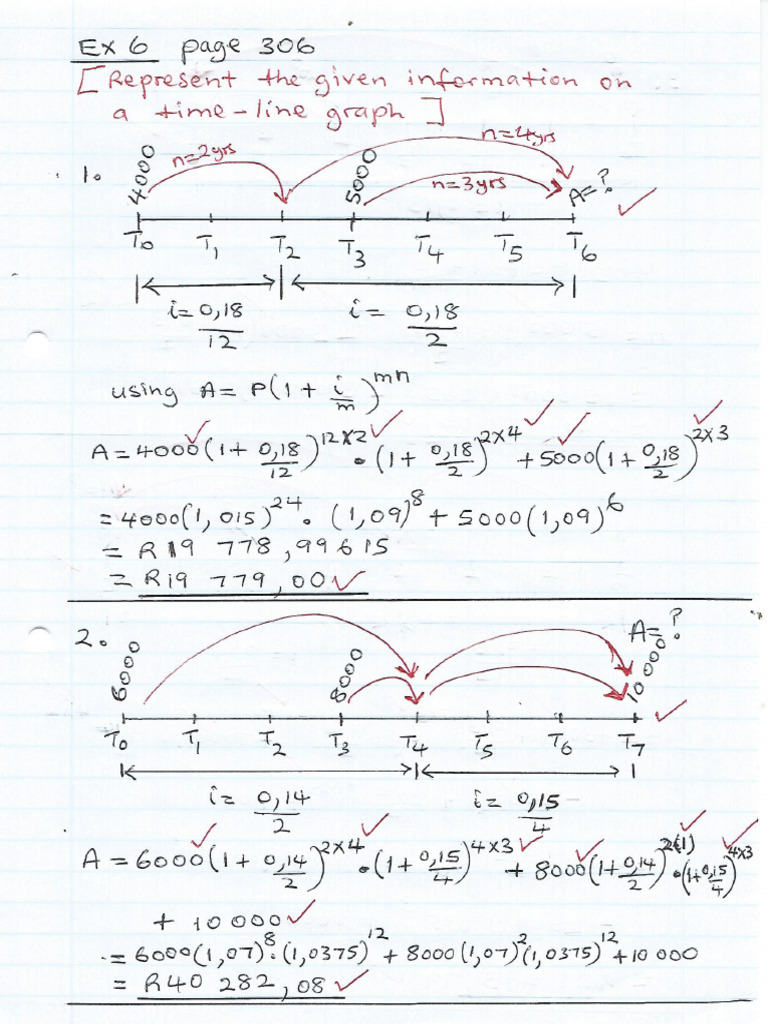 Ex 6 page 306
[Represent the given information on
a time-line graph]
1. 4000 n=2yrs 5000 n=4yrs n=3yrs A=?
T0 T1 T2 T3 T4 T5 T6
i=0,18/12 i= 0,18/2
using A= P(1 + i/m)^mn
A=4000(1+0,18/12)^12x2 • (1+ 0,18/2)^2x4 +5000(1+0,18/2)^2x3
=4000(1,015)^24 • (1,09)^8 + 5000(1,09)^6
= R19 778,99615
= R19 779,00
2. 6000 8000 A=? 10 000
T0 T1 T2 T3 T4 T5 T6 T7
i= 0,14/2 i= 0,15/4
A = 6000(1+0,14/2)^2x4 •(1+0,15/4)^4x3 + 8000(1+0,14/2)^2(1) •(1+0,15/4)^4x3
+ 10 000
= 6000(1,07)^8•(1,0375)^12 +8000(1,07)^2(1,0375)^12 +10 000
= R40 282,08